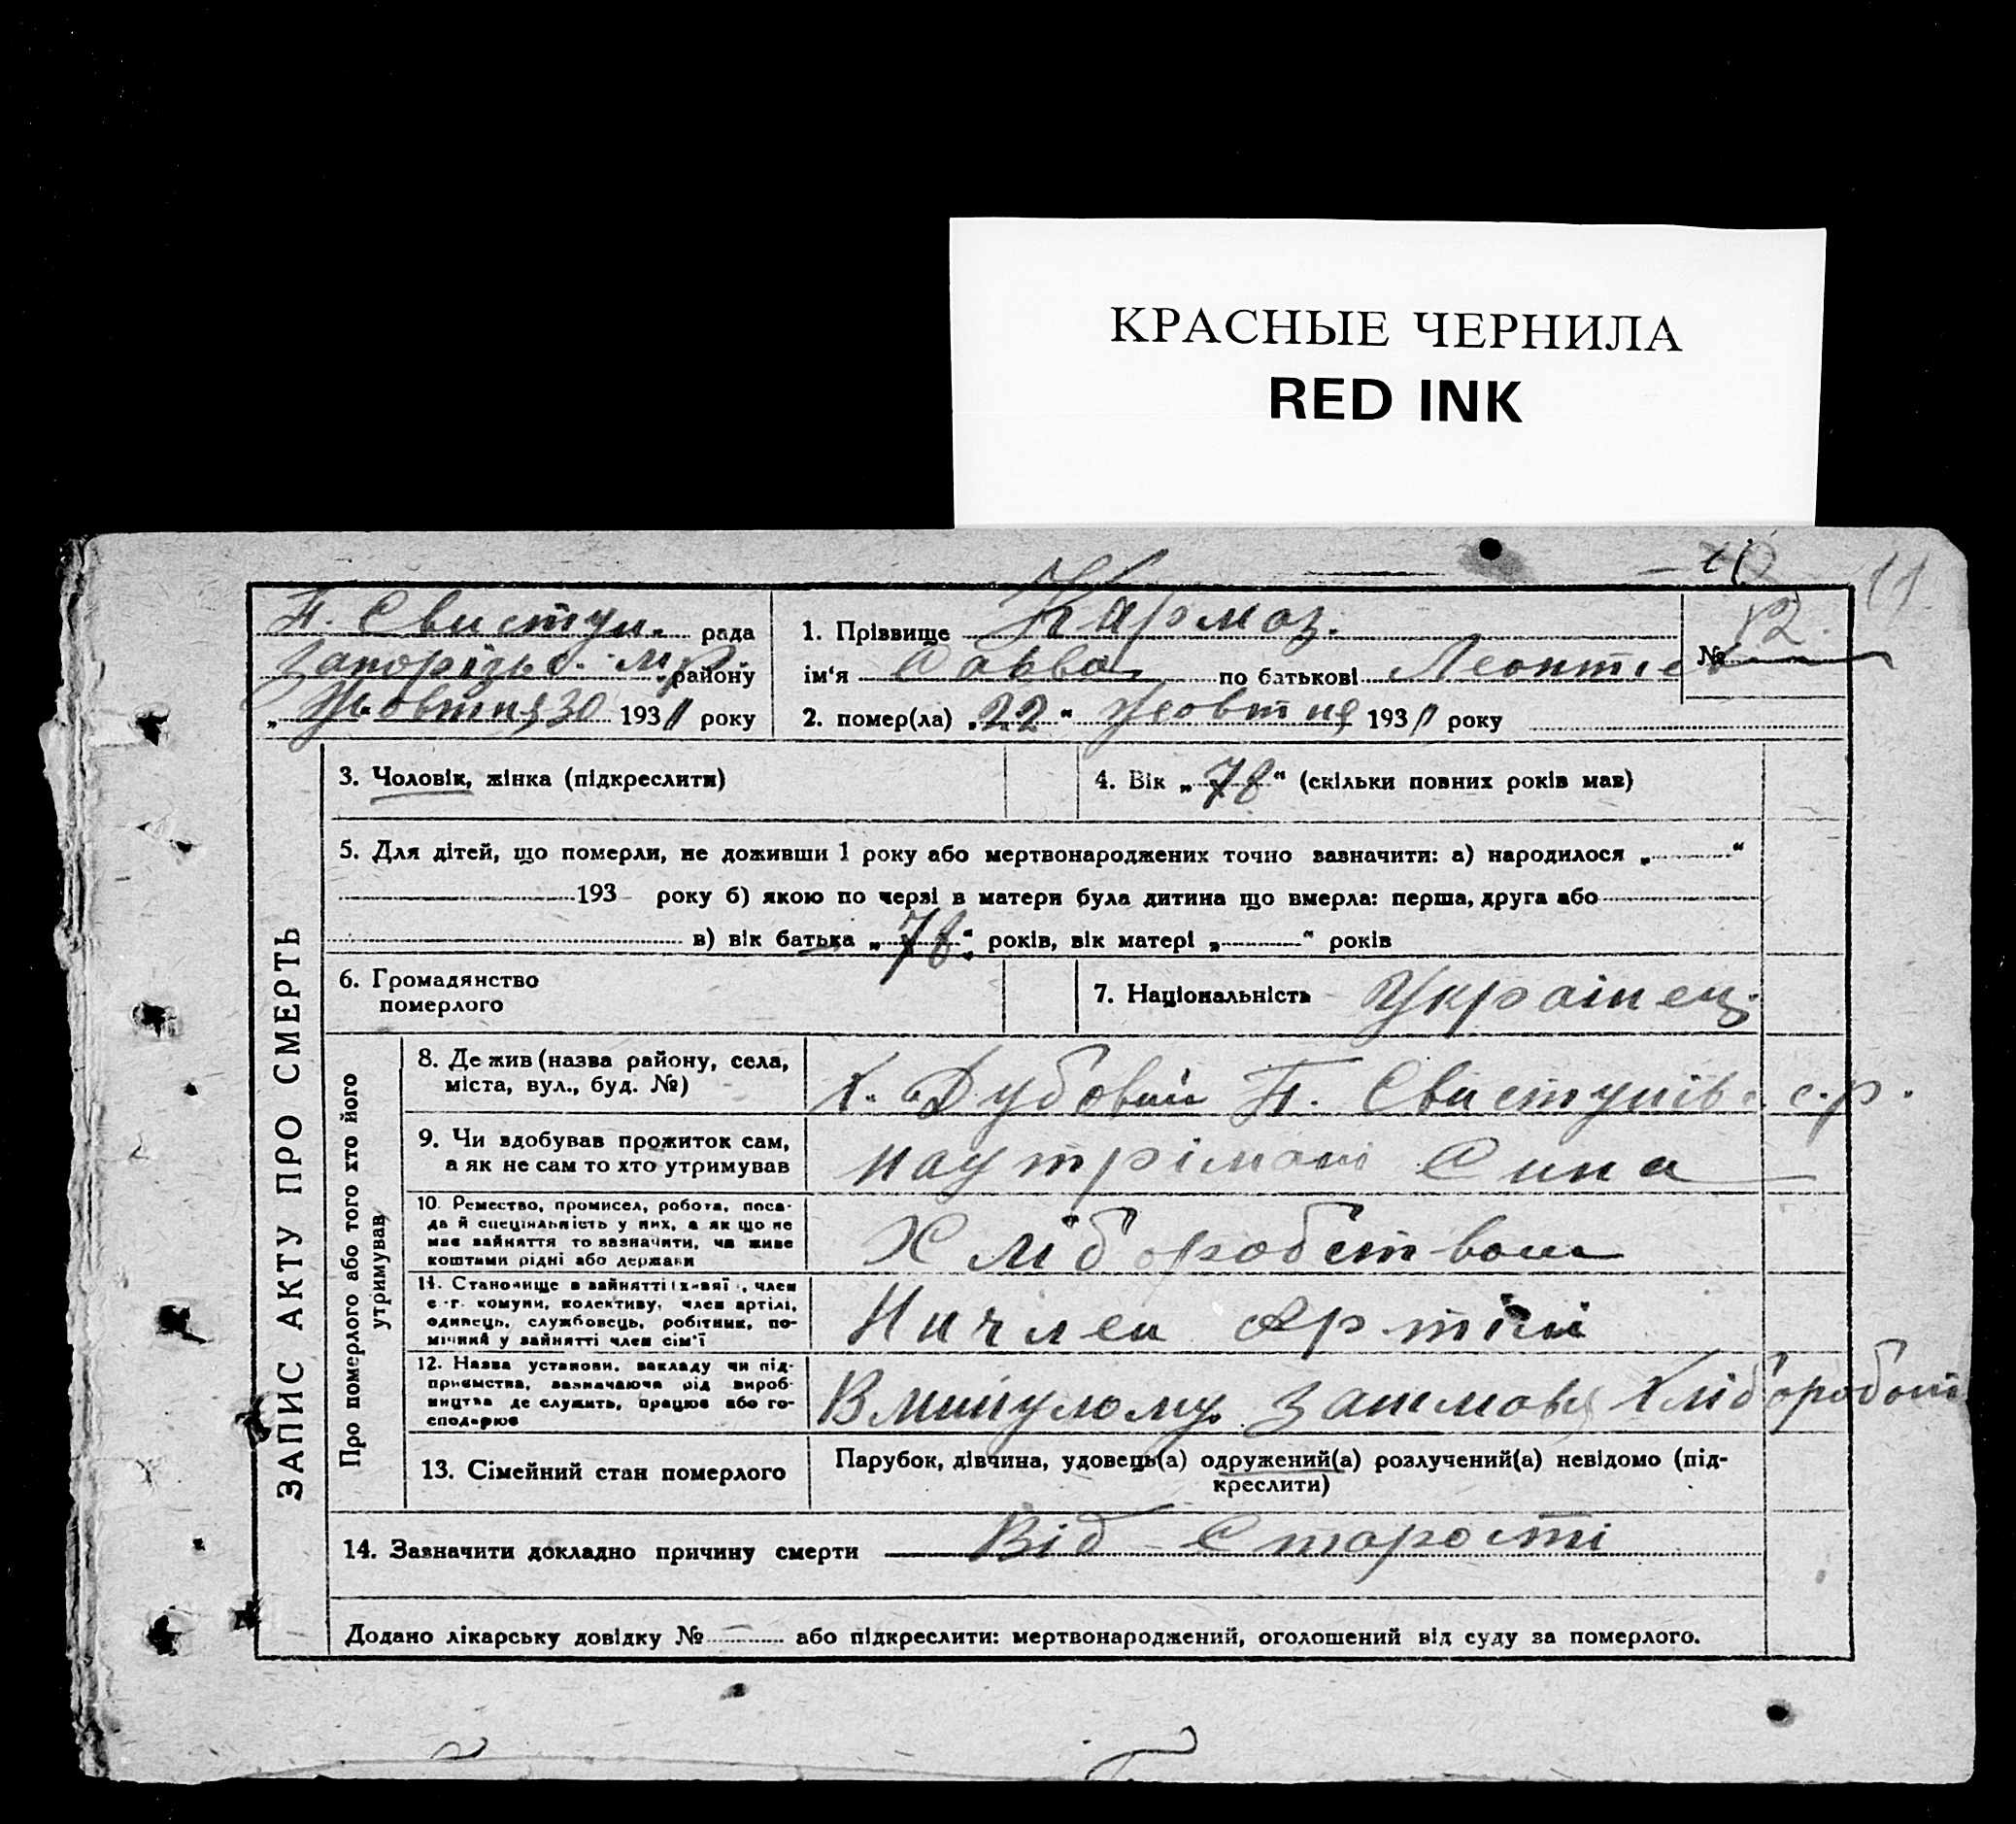 КРАСНЫЕ ЧЕРНИЛА
RED INK
11
П. Свистун. рада
Запорізьк. м/р району
„ Жовтня 30 1931 року
1. Прізвище Кармаз.
ім‘я Савва по батькові Леонтієв
2. помер(ла) „22“ Жовтня 1931 року
№
12.
ЗАПИС АКТУ ПРО СМЕРТЬ
3. Чоловік, жінка (підкреслити)
4. Вік „78“ (скільки повних років мав)
5. Для дітей, що померли, не доживши 1 року або мертвонароджених точно зазначити: а) народилося „ “
193 року б) якою по черзі в матери була дитина що вмерла: перша, друга або
в) вік батька „78“ років, вік матері „ “ років
6. Громадянство
померлого
7. Національність Українец.
Про померлого або того хто його
утримував
8. Де жив (назва району, села,
міста, вул., буд. №)
х. Дубовий П. Свистунівс. с.р.
9. Чи вдобував прожиток сам,
а як не сам то хто утримував
Наутрімані Сина
10. Ремество, промисел, робота, поса-
да й спеціяльність у них, а як що не
має зайняття то зазначити, чи живе
коштами рідні або держави
Хліборобством
11. Становище в зайнятті член
с.-г. комуни, колективу, член артілі,
одинець, службовець, робітник, по-
мічний у зайнятті член сім‘ї
Ничлен Артілі
12. Назва установи, закладу чи під-
приємства, зазначаючи рід вироб-
ництва де служить, працює або го-
сподарює
Вминулому займався Хліборобст
13. Сімейний стан померлого
Парубок, дівчина, удовець(а) одружений(а) розлучений(а) невідомо (під-
креслити)
14. Зазначити докладно причину смерти Від Старості
Додано лікарську довідку № — або підкреслити: мертвонароджений, оголошений від суду за померлого.